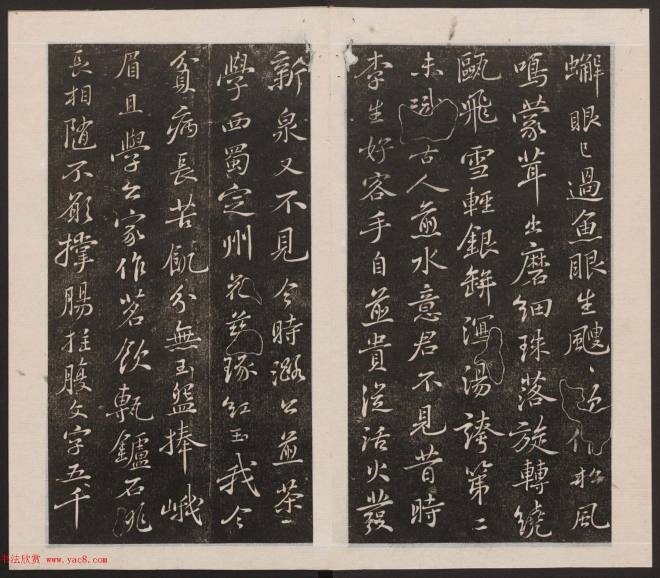 蠏眼已過魚眼生颼〻欲作松風
鳴蒙茸出磨細珠落旋轉繞
甌飛雪輕銀缾瀉湯誇第二
未識古人煎水意君不見昔時
李生好客手自煎貴從活火發
新泉又不見今時潞公煎茶
學西蜀定州花瓷琢紅玉我今
貧病長苦飢分無玉盌捧峨
眉且學公家作茗飲甎鑪石銚
長相隨不願撐腸拄腹文字五千
书法欣赏 www.yac8.com